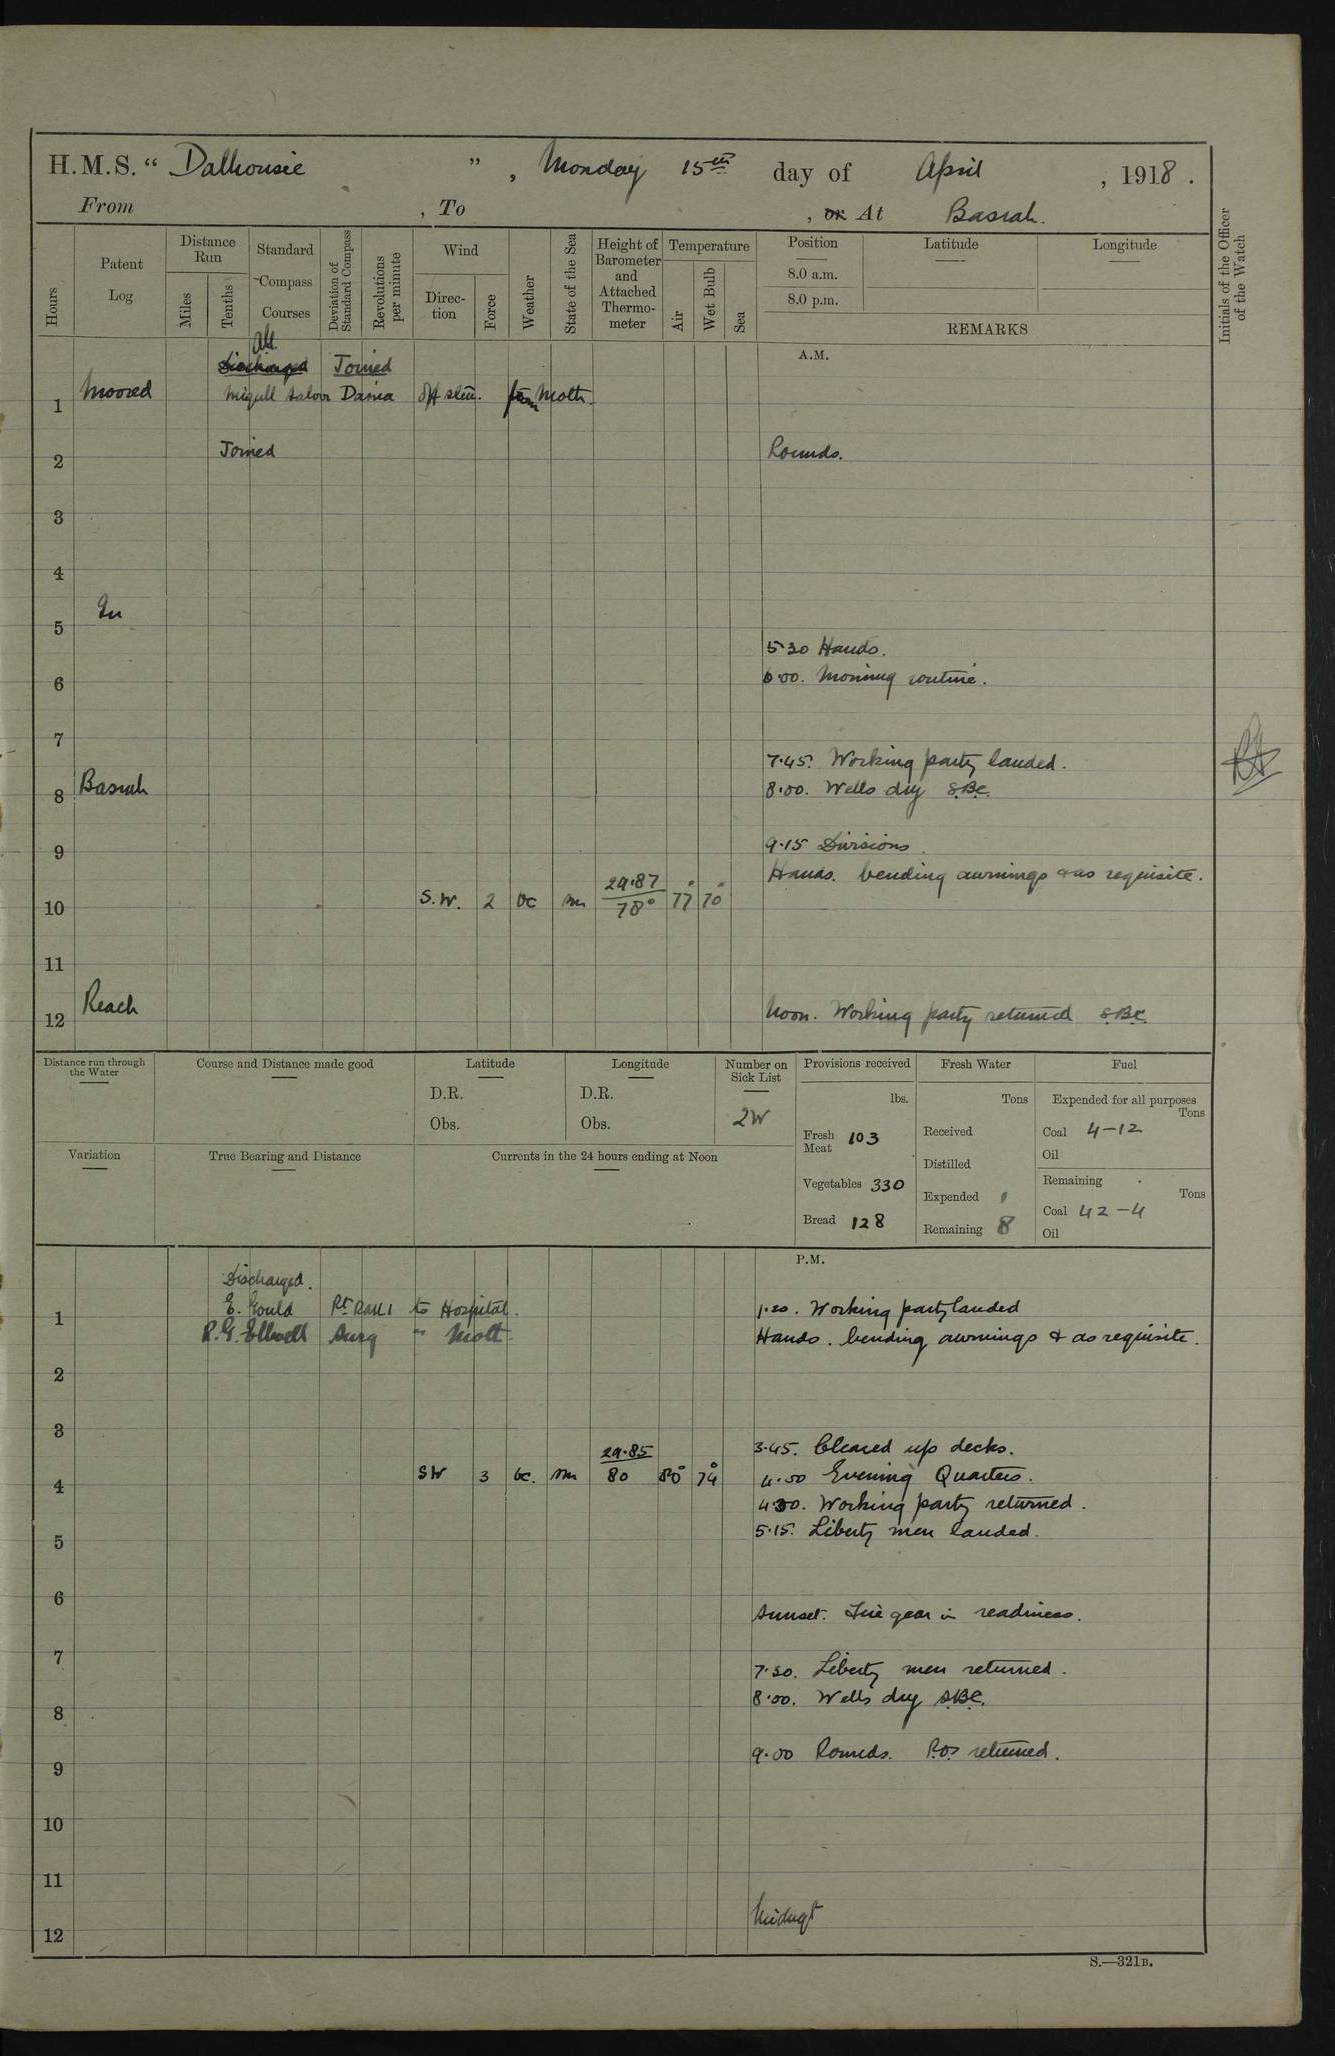 H.M.S. " Dalhousie ", Monday 15th day of April, 1918.
From , To , or At Basrah.
Hours
Patent Log
Distance Run
Miles
Tenths
Standard Compass Courses
Deviation of Standard Compass
Revolutions per minute
Wind
Direction
Force
Weather
State of the Sea
Height of Barometer and Attached Thermometer
Temperature
Air
Wet Bulb
Sea
Position
8.0 a.m.
8.0 p.m.
Latitude
Longitude
REMARKS
Initials of the Officer of the Watch
A.M.
Discharged Joined
1 Moored Off stew. from Moth.
2 Joined Rounds.
3
4
In
5
5.30 Hands.
6 6.00. Morning routine.
7
7.45. Working party landed.
8 Basrah 8.00. Wells dry S.B.C.
9 9.15 Divisions.
Hands. bending awnings & as requisite.
10 S.W. 2 bc sm 29.87 78° 77° 70°
11
12 Reach Noon. Working party returned S.B.C.
Distance run through the Water
Course and Distance made good
Latitude
D.R.
Obs.
Longitude
D.R.
Obs.
Number on Sick List
2W
Provisions received
lbs.
Fresh Meat 103
Vegetables 330
Bread 128
Fresh Water
Tons
Received
Distilled
Expended 1
Remaining 8
Fuel
Expended for all purposes
Tons
Coal 4-12
Oil
Remaining
Tons
Coal 42-4
Oil
Variation
True Bearing and Distance
Currents in the 24 hours ending at Noon
P.M.
Discharged.
1 E. Gould to Hospital. 1.20. Working party landed
R.G. Ellwell Surg " Moth. Hands. bending awnings & as requisite.
2
3
3.45. Cleared up decks.
4 SW 3 bc. sm 29.85 80 80° 74° 4.00 Evening Quarters.
4.30. Working party returned.
5 5.15. Liberty men landed.
6
Sunset. Fire gear in readiness.
7 7.30. Liberty men returned.
8 8.00. Wells dry S.B.C.
9 9.00 Rounds. P.O.s returned.
10
11
12 Midngt
S.—321B.